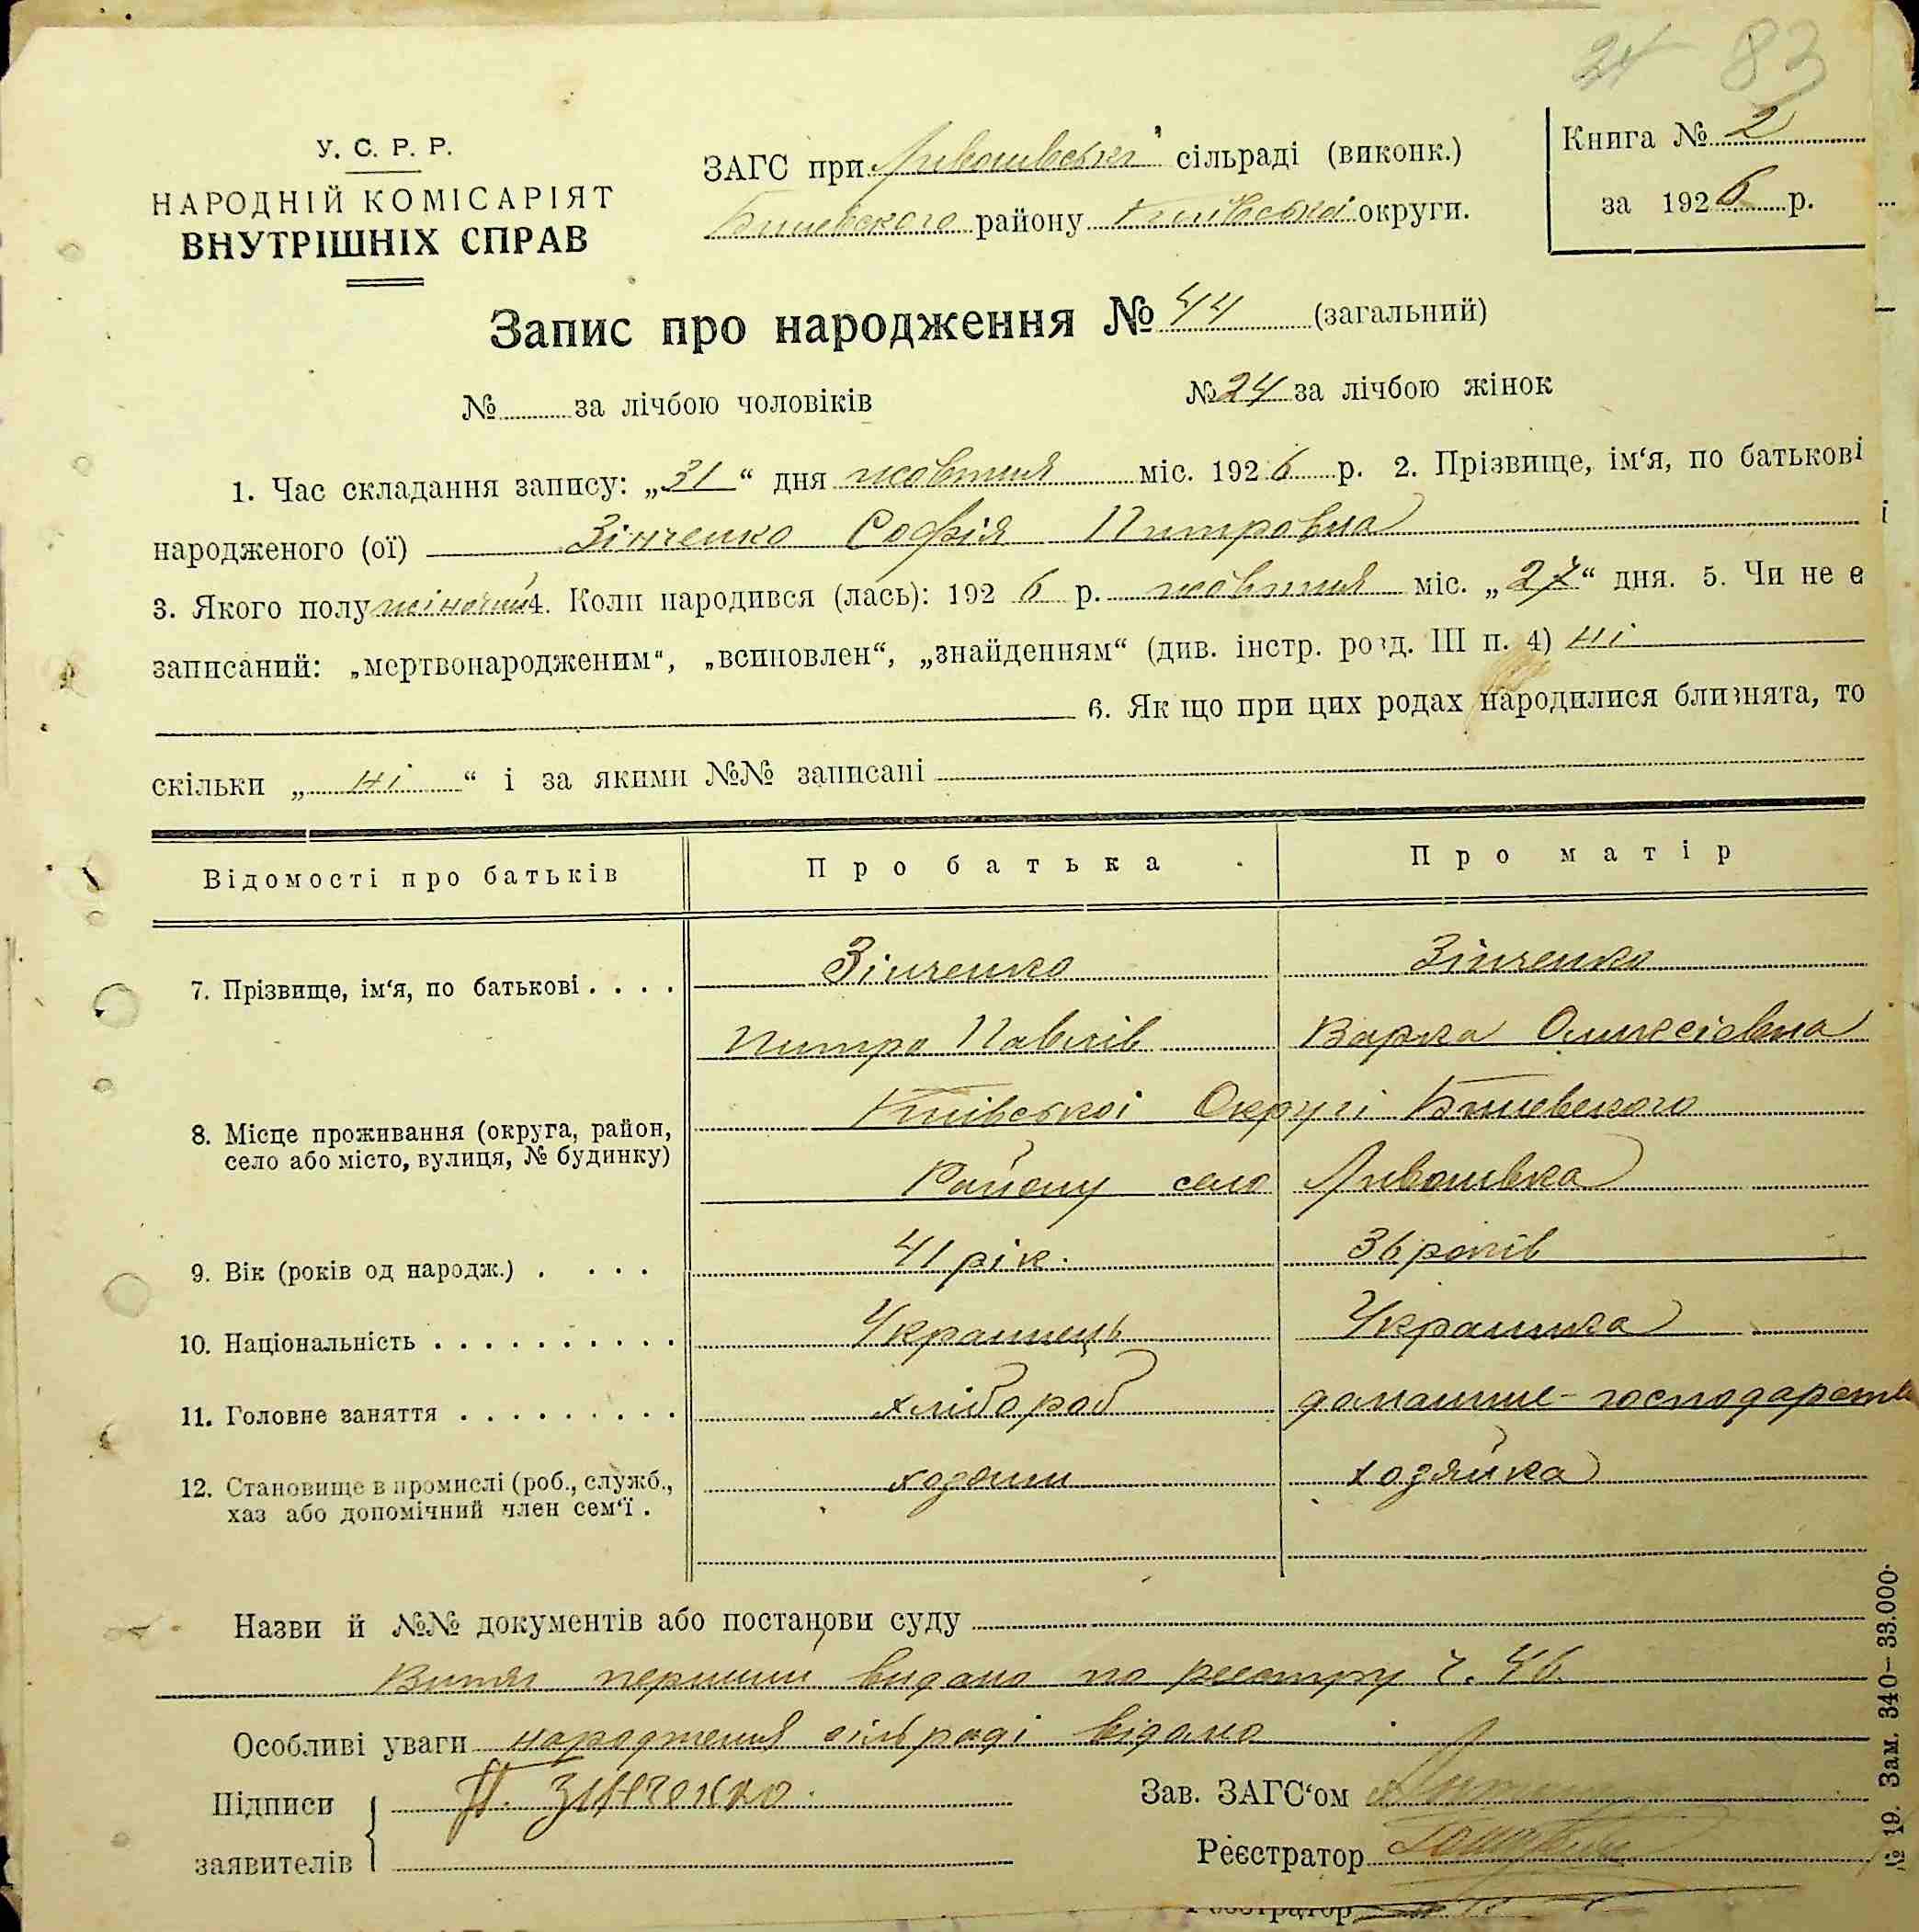 24 83
У. С. Р. Р.
НАРОДНІЙ КОМІСАРІЯТ
ВНУТРІШНІХ СПРАВ
ЗАГС при сільраді (виконк.)
району Київської округи.
Книга № 2
за 1926 р.
Запис про народження № 44 (загальний)
№ за лічбою чоловіків № 24 за лічбою жінок
1. Час складання запису: „31“ дня жовтня міс. 1926 р. 2. Прізвище, ім‘я, по батькові
народженого (ої) Зінченко Софія Питровна
3. Якого полу жіночий 4. Коли народився (лась): 1926 р. жовтня міс. „27“ дня. 5. Чи не є
записаний: „мертвонародженим“, „всиновлен“, „знайденням“ (див. інстр. розд. III п. 4) ні
6. Як що при цих родах народилися близнята, то
скільки „ ні “ і за якими №№ записані
Відомості про батьків Про батька Про матір
7. Прізвище, ім‘я, по батькові . . . . Зінченко Зінченко
Питро Павлів Варка Оликсіевна
8. Місце проживання (округа, район, Київськоі Округі Бишевского
село або місто, вулиця, № будинку) Району село
9. Вік (років од народж.) . . . . 41 рік. 36 років
10. Національність . . . . . . . . . . Украинець Украинка
11. Головне заняття . . . . . . . . . хлібороб домашне-господарств
12. Становище в промислі (роб., служб., хозяин хозяйка
хаз або допомічний член сем‘ї .
Назви й №№ документів або постанови суду
Витяг первиий видано по реєстру ч. 46.
Особливі уваги народження сільраді відомо
Підписи П. Зинченко. Зав. ЗАГС‘ом
заявителів Реєстратор
Реєстратор
№ 19. Зам. 340—33.000.